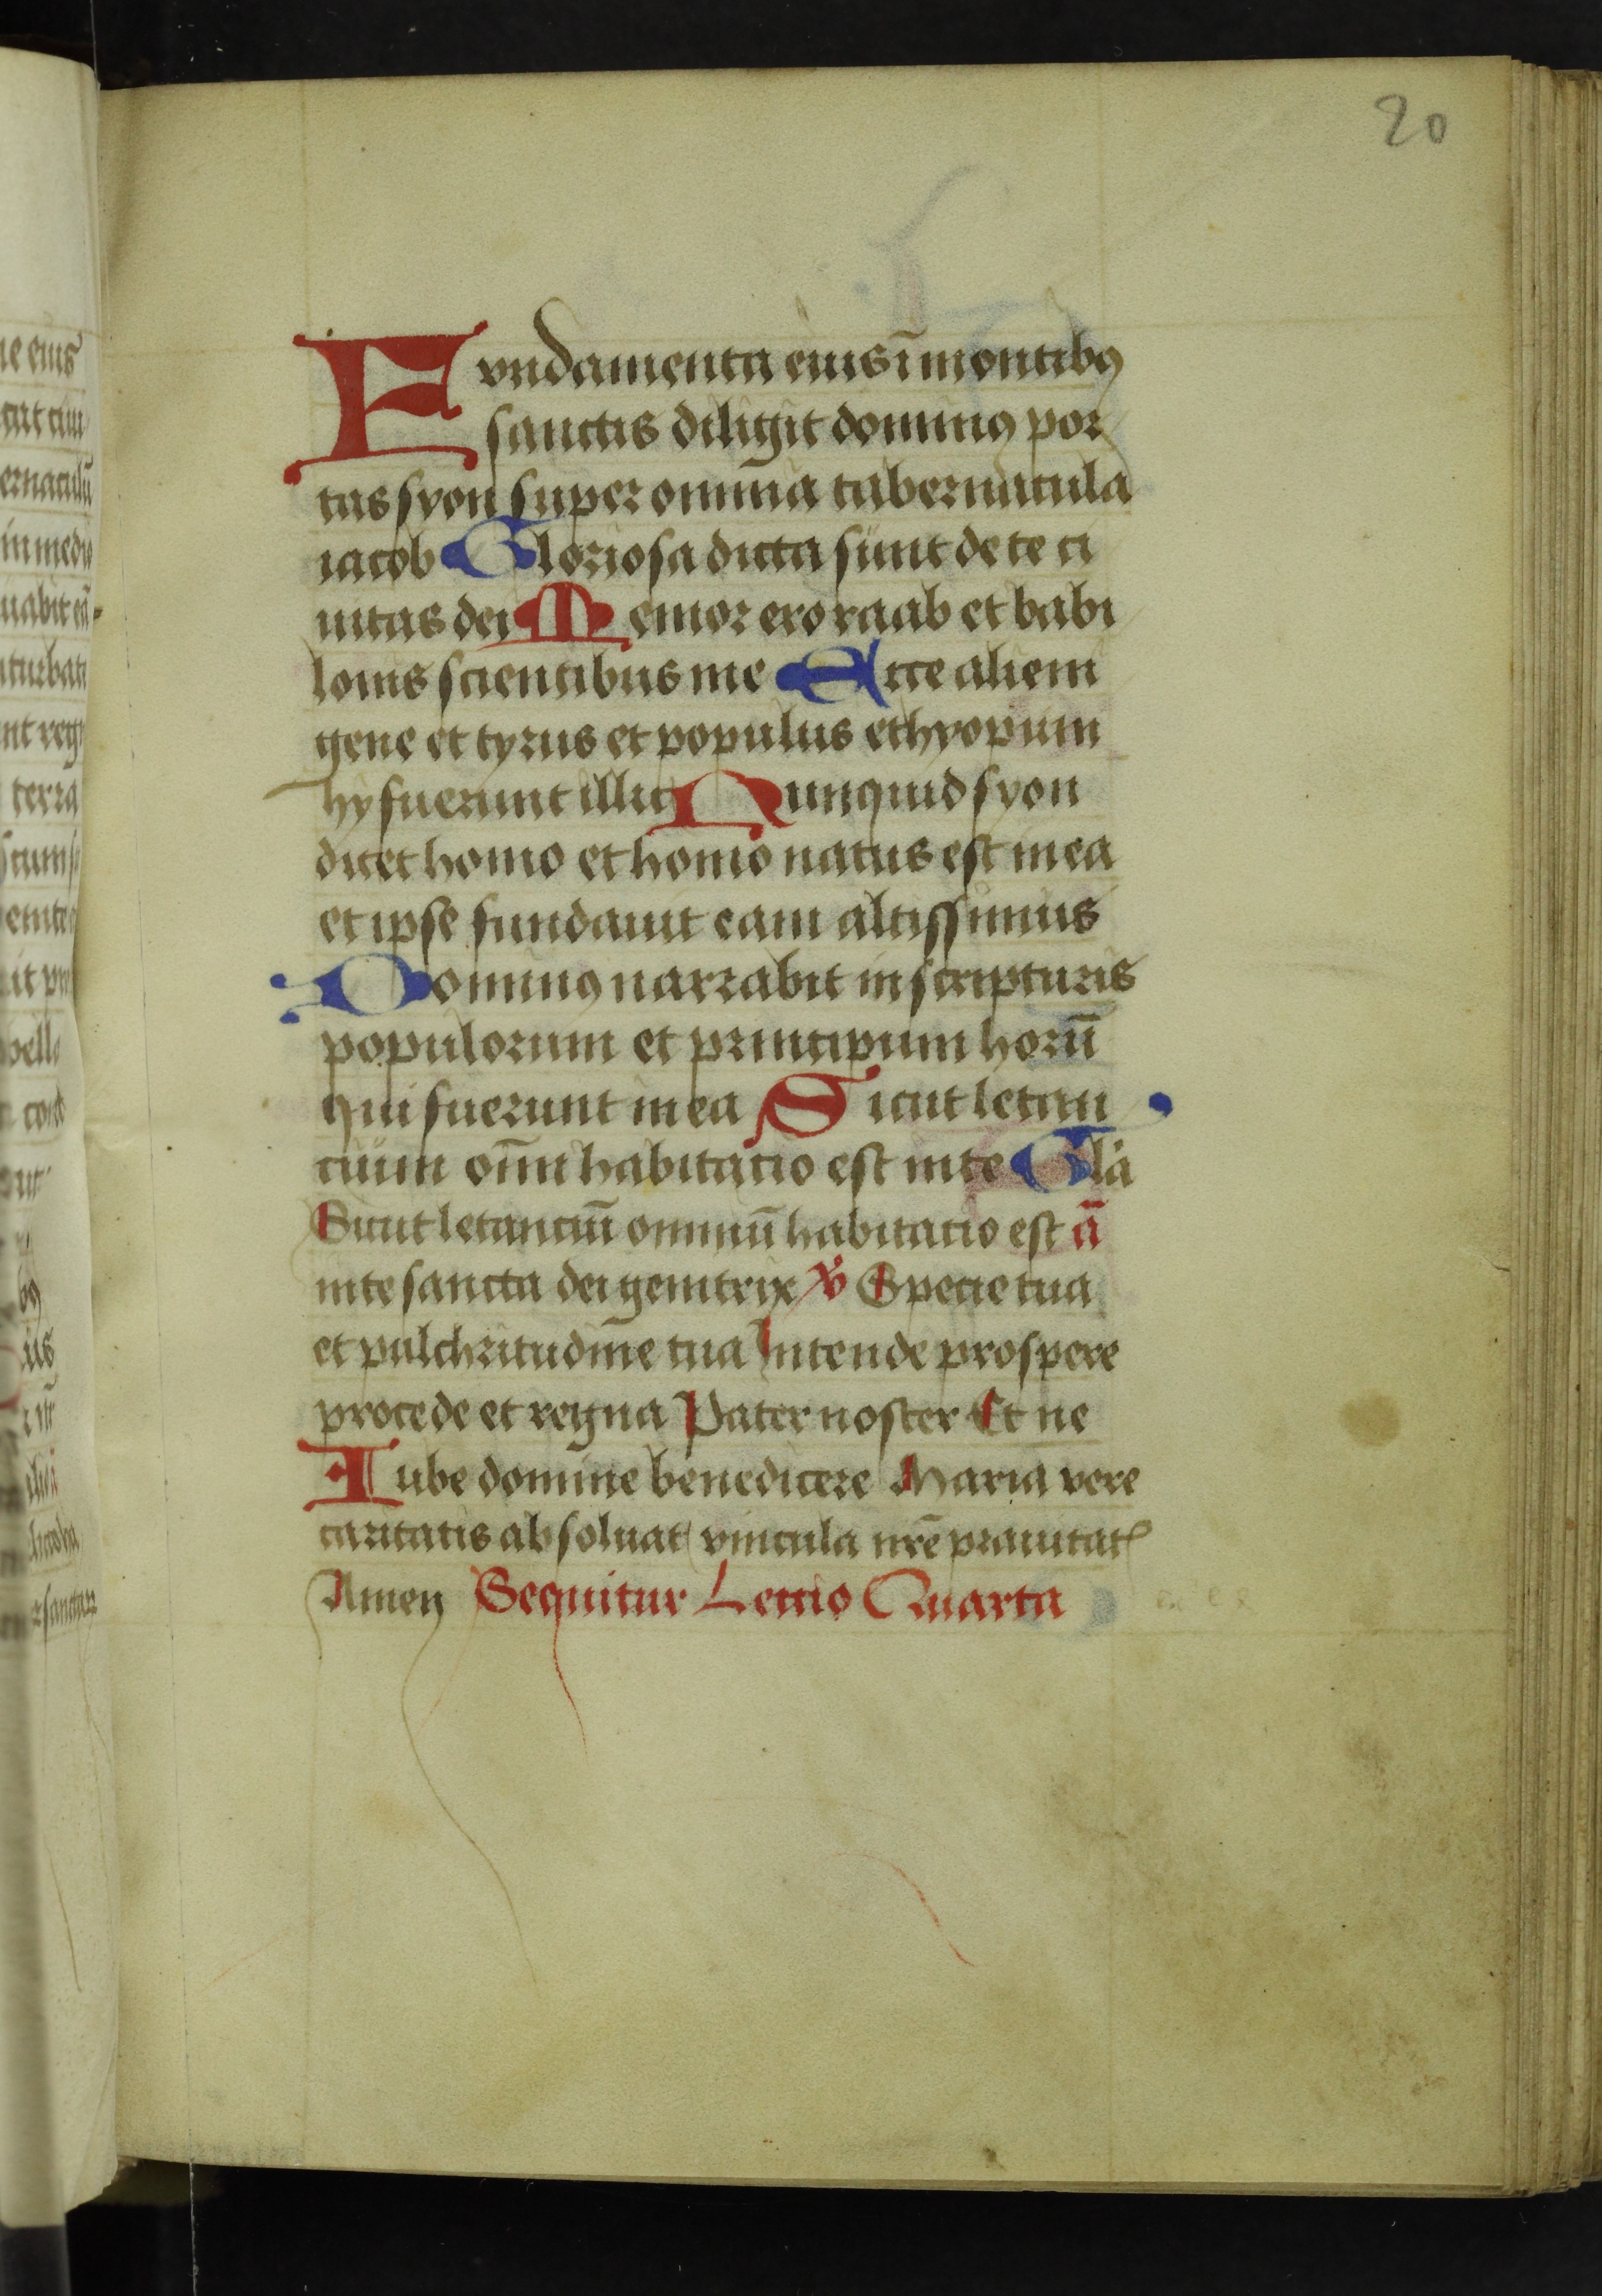 20
Fvndamenta eius ī montibꝯ
sanctis diligit dominꝯ por
tas syon super omnia tabernacula
iacob Gloriosa dicta sunt de te ci
uitas dei Memor ero raab et babi
lonis scientibus me Ecce alieni
gene et tyrus et populus ethyopum
hy fuerunt illic Nunquid syon
dicet homo et homo natus est in ea
et ipse fundauit eam altissimus
Dominꝯ narrabit in scripturis
populorum et principum horū
qui fuerunt in ea Sicut letan
cium om̄i habitacio est in te Gl̄a
Sicut letanciū omniū habitacio est ā
in te sancta dei genitrix ℣ Specie tua
et pulchritudine tua Intende prospere
procede et regna Pater noster Et ne
Iube domine benedicere Maria vere
caritatis absoluat vincula nr̄e prauitatꝭ
Amen Sequitur Lectio Quarta